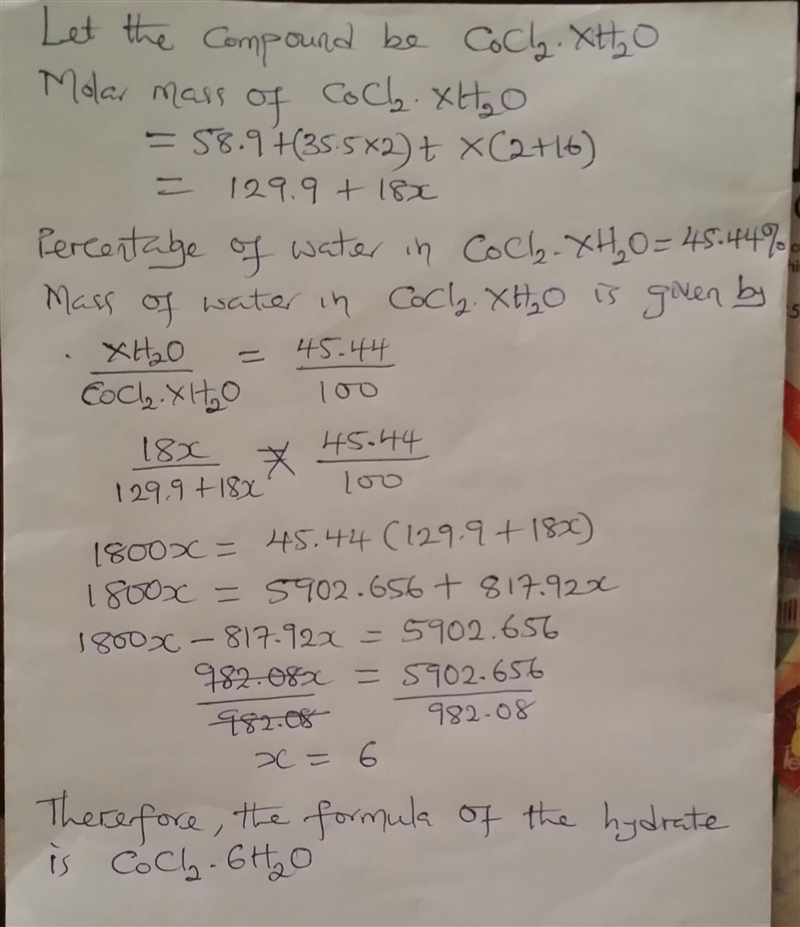 Let the compound be CoCl₂.XH₂O
Molar mass of CoCl₂.XH₂O
= 58.9+(35.5×2)+ x(2+16)
= 129.9 + 18x
Percentage of water in CoCl₂.XH₂O = 45.44%
Mass of water in CoCl₂.XH₂O is given by
. XH₂O / CoCl₂.XH₂O = 45.44 / 100
18x / 129.9+18x × 45.44 / 100
1800x = 45.44 (129.9 + 18x)
1800x = 5902.656 + 817.92x
1800x - 817.92x = 5902.656
982.08x / 982.08 = 5902.656 / 982.08
x = 6
Therefore, the formula of the hydrate
is CoCl₂.6H₂O